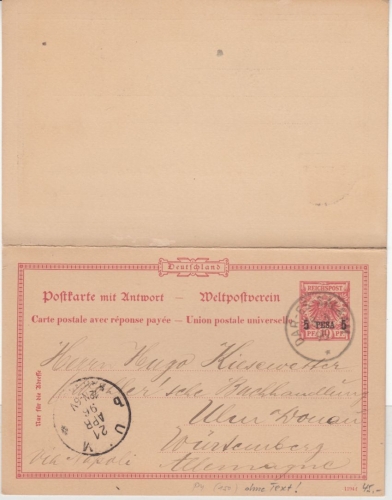 Deutschland
REICHSPOST
Postkarte mit Antwort — Weltpostverein
5 PESA 5
Carte postale avec réponse payée — Union postale universelle
PF 10 PF
DAR-ES-SALAAM
Nur für die Adresse
Herrn Hugo Kiesewetter
Buchhandlung
Ulm Donau
Würtemberg
Via Napoli
Allemagne
ULM
21
APR
96
ohne Text!
45,-